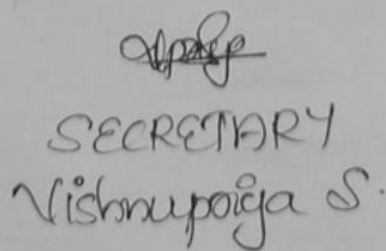 SECRETARY
Vishnupoiya S.